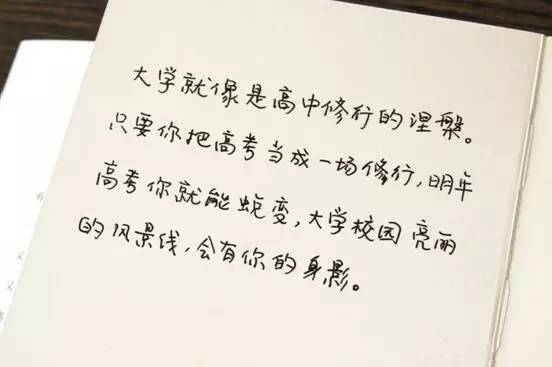 大学就像是高中修行的涅槃。
只要你把高考当成一场修行,明年
高考你就能蜕变,大学校园亮丽
的风景线,会有你的身影。